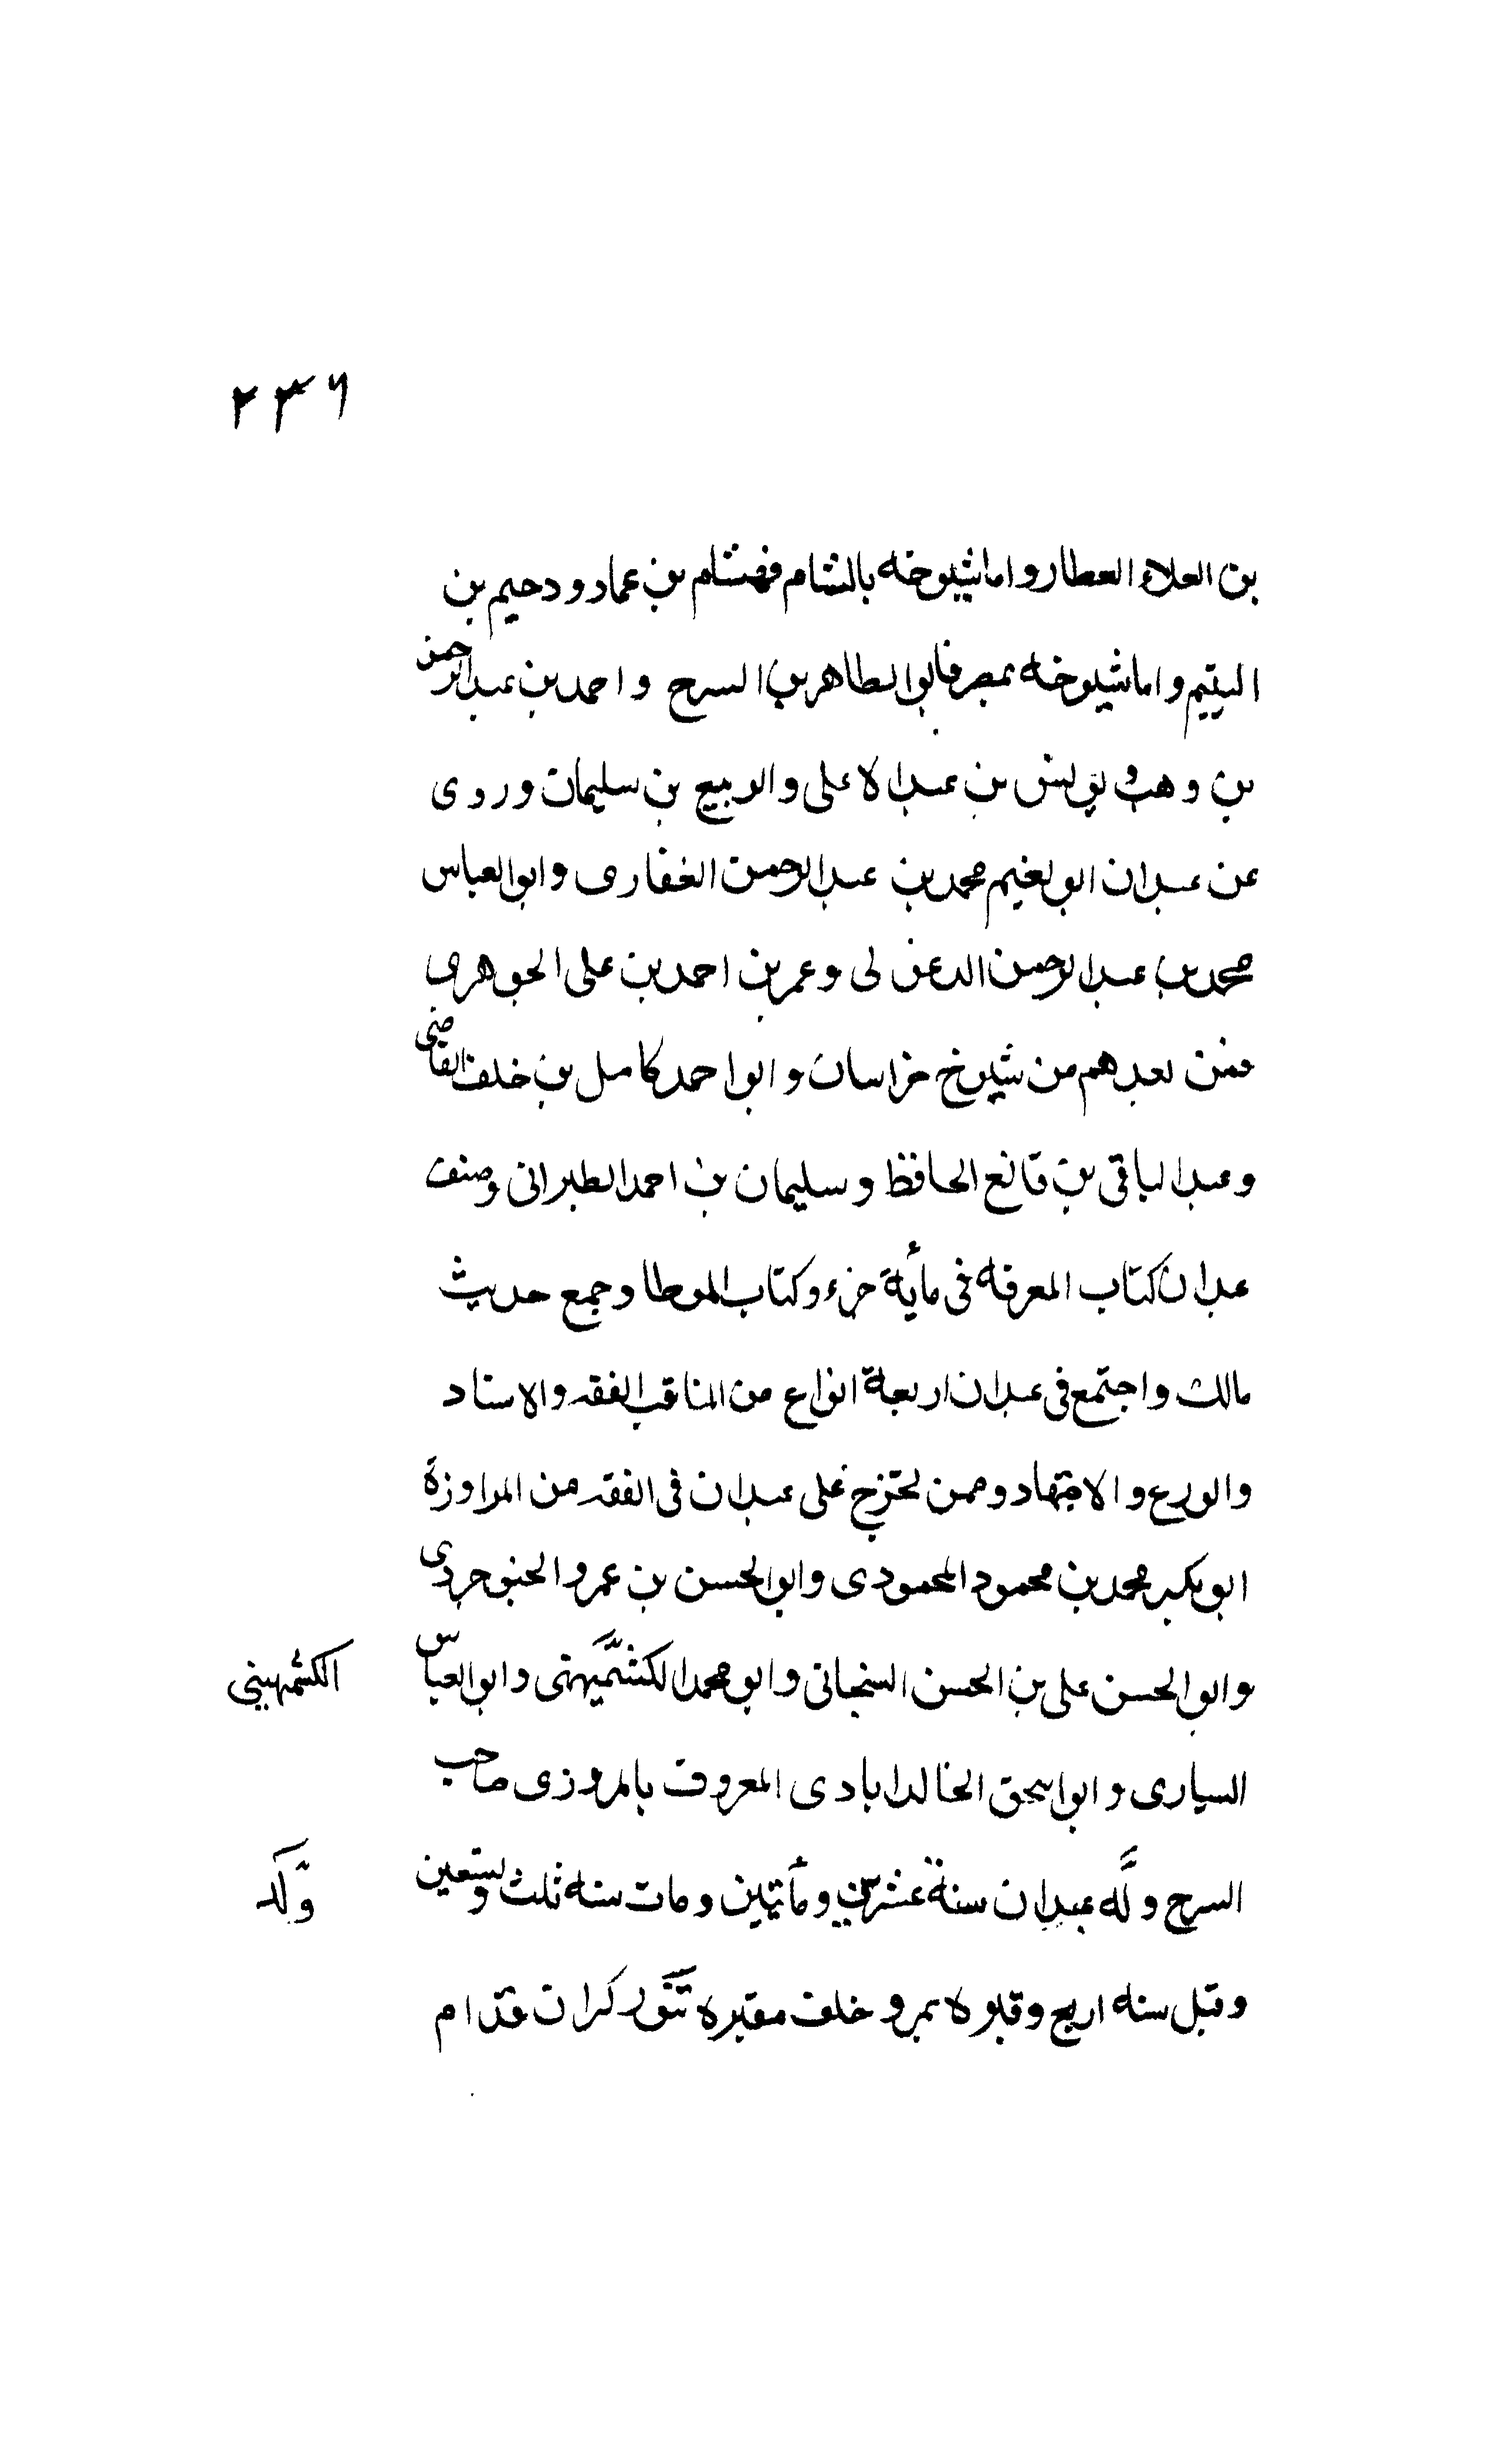 ٢٣٦
بن العلاء العطار واما شيوخه بالشام فهشام بن عمار ودحيم بن
اليتيم واما شيوخه بمصر فابو الطاهر بن السرح واحمد بن عبد الرحمن
بن وهب ويونس بن عبد الاعلى والربيع بن سليمان وروى
عن عبدان ابو نعيم محمد بن عبد الرحمن الغفارى وابو العباس
محمد بن عبد الرحمن الدغولى وعمر بن احمد بن على الجوهرى
فمن بعدهم من شيوخ خراسان وابو احمد كامل بن خلف القاضى
وعبد الباقى بن قانع الحافظ وسليمان بن احمد الطبرانى وصنف
عبدان كتاب المعرفه فى مأية جزء وكتاب الموطا وجمع حديث
مالك واجتمع فى عبدان اربعة انواع من المناقب الفقه والاسناد
والورع والاجتهاد وممن تخرج على عبدان فى الفقه من المراوزة
ابو بكر محمد بن محمود المحمودى وابو الحسن بن عمرو الخنوجردى
وابو الحسن على بن الحسن السنجانى وابو محمد الكشميهنى وابو العباس
الكشمهينى
السيارى وابو اسحق الخالدابادى المعروف بالمروزى صاحب
السرج ولّه عبدان سنة عشرين ومأتين ومات سنه ثلث وتسعين
ولّد
وقيل سنه اربع وقبره بمرو خلف مقبره تنور كران قدام